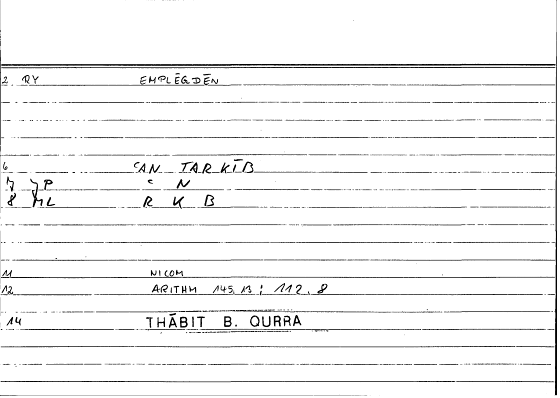 2 RY EMPLĒGDĒN
6 ʿAN TARKĪB
7 JP ʿ N
8 ML R K B
11 NICOM
12 ARITHM 145, 13 ; 112, 8
14 THĀBIT B. QURRA